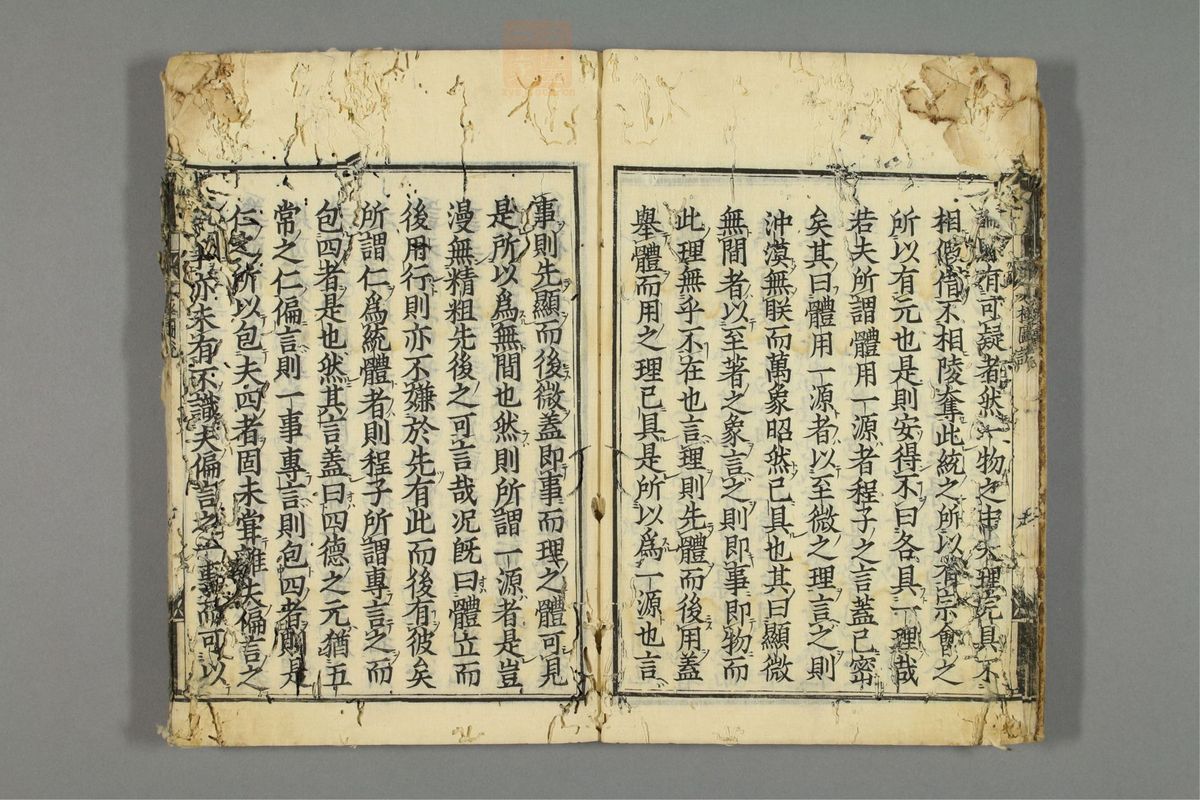 有可疑者然一物之中天理完具不
相假借不相陵奪此統之所以有宗會之
所以有元也是則安得不曰各具一理哉
若夫所謂體用一源者程子之言蓋已密
矣其曰體用一源者以至微之理言之則
沖漠無眹而萬象昭然已具也其曰顯微
無間者以至著之象言之則即事即物而
此理無乎不在也言理則先體而後用蓋
舉體而用之理已具是所以爲一源也言
事則先顯而後微蓋即事而理之體可見
是所以爲無間也然則所謂一源者是豈
漫無精粗先後之可言哉況既曰體立而
後用行則亦不嫌於先有此而後有彼矣
所謂仁爲統體者則程子所謂專言之而
包四者是也然其言蓋曰四德之元猶五
常之仁偏言則一事專言則包四者則是
仁之所以包夫四者固未嘗離夫偏言之
一事亦未有不識夫偏言之一事而可以